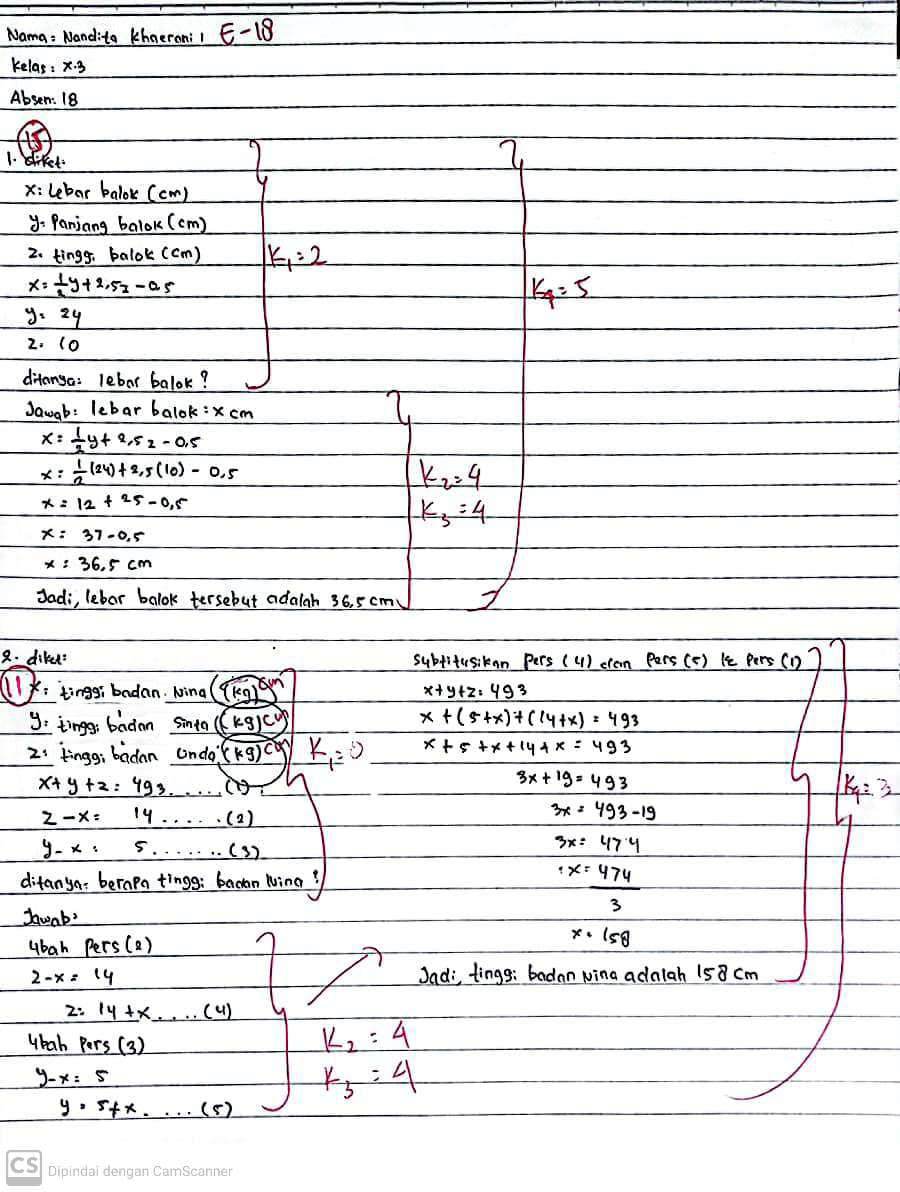 Nama: Nandita Khaerani I E-18
Kelas: X.3
Absen: 18
15
1. diket:
x: Lebar balok (cm)
y: Panjang balok (cm)
z: tinggi balok (cm)
K₁=2
x: ½y + 2,5z - 0,5
K₄=5
y: 24
z: 10
ditanya: lebar balok?
Jawab: lebar balok : x cm
x: ½y + 2,5z - 0,5
x: ½(24) + 2,5(10) - 0,5
K₂=4
x = 12 + 25 - 0,5
K₃=4
x: 37-0,5
x: 36,5 cm
Jadi, lebar balok tersebut adalah 36,5 cm
2. diket:
11
x: tinggi badan Nina (kg) cm
y: tinggi badan Sinta (kg) cm
z: tinggi badan Unda (kg) cm
K₁=0
x+y+z: 493......(1)
z-x= 14......(2)
y-x: 5.......(3)
ditanya: berapa tinggi badan Nina?
Jawab:
Ubah Pers (2)
z-x= 14
z: 14+x....(4)
Ubah Pers (3)
y-x: 5
y = 5+x....(5)
K₂=4
K₃=4
Subtitusikan Pers (4) dan Pers (5) ke Pers (1)
x+y+z: 493
x+(5+x)+(14+x) = 493
x+5+x+14+x = 493
3x+19 = 493
3x = 493-19
3x = 474
x = 474
3
x = 158
Jadi, tinggi badan Nina adalah 158 cm
K₄=3
CS Dipindai dengan CamScanner